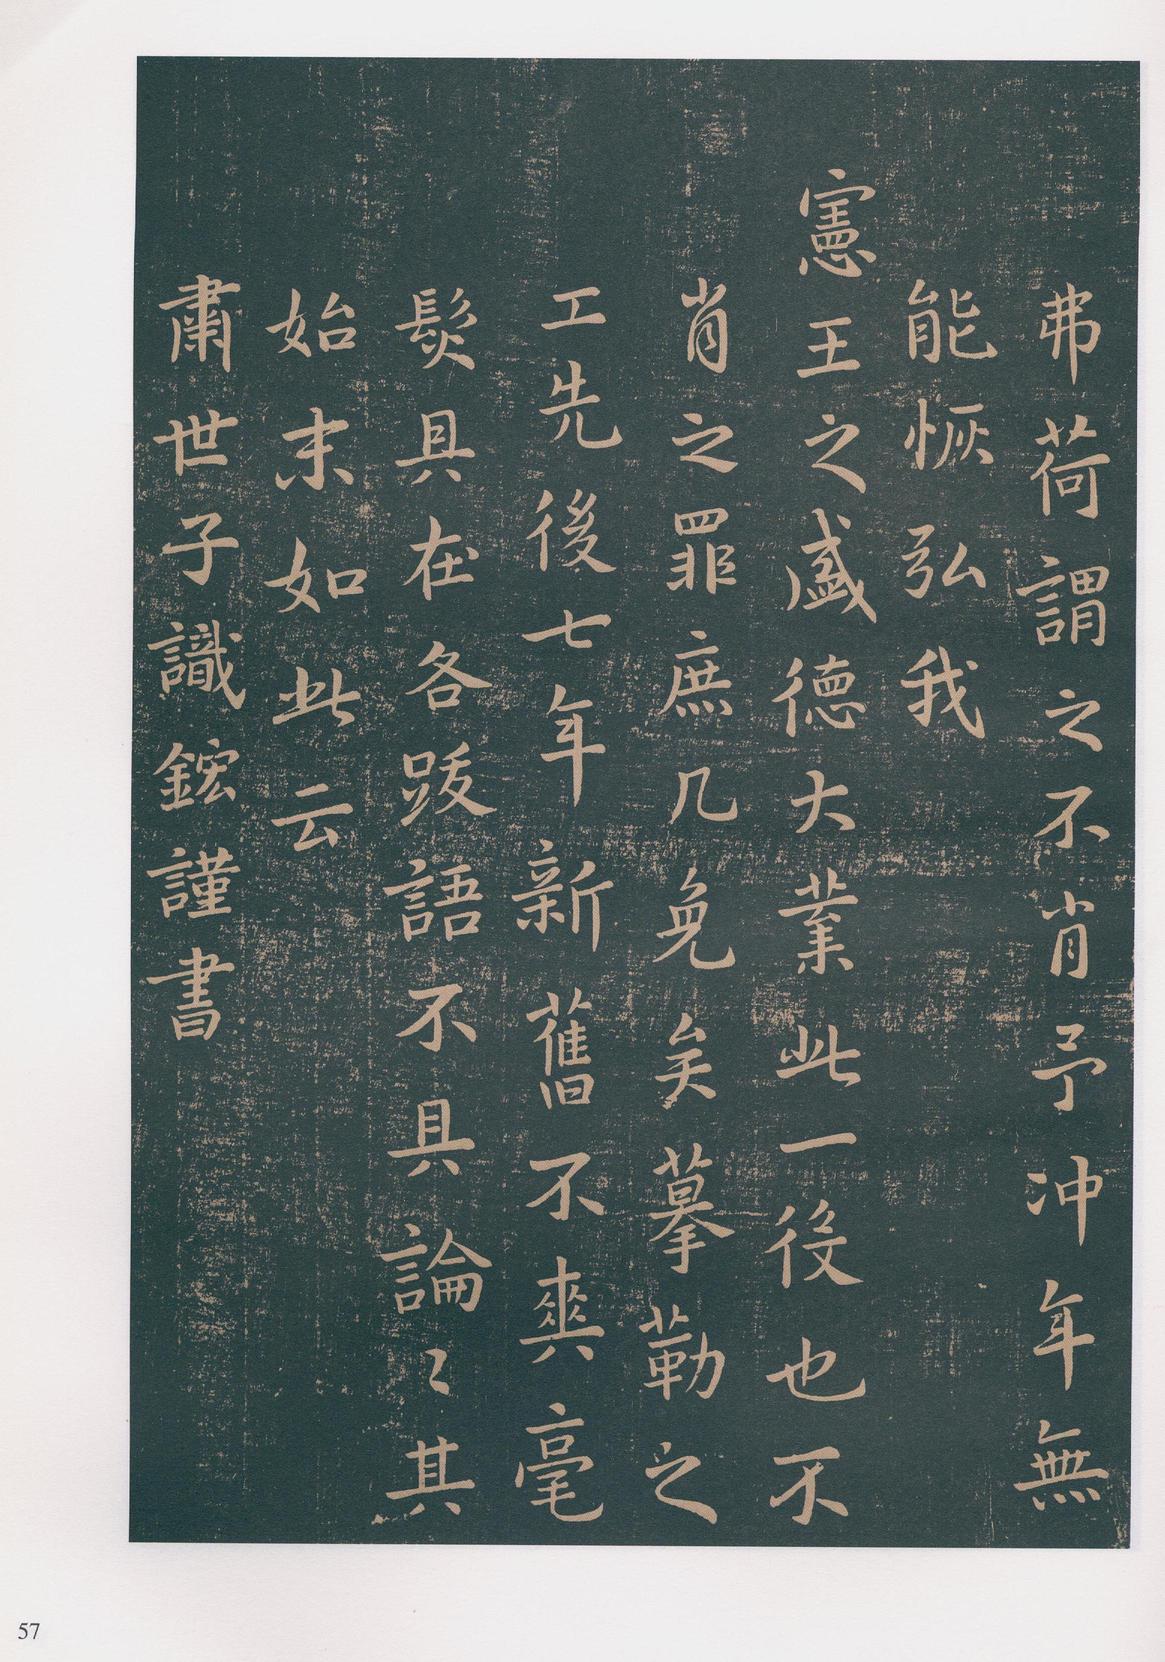 弗荷謂之不肖予冲年無
能恢弘我
憲王之盛德大業此一役也不
肖之罪庶几免矣摹勒之
工先後七年新舊不爽毫
髮具在各跋語不具論〻其
始末如此云
肅世子識鋐謹書
57